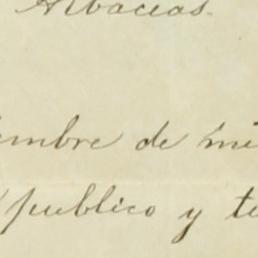 Albaceas.
embre de mi
publico y te